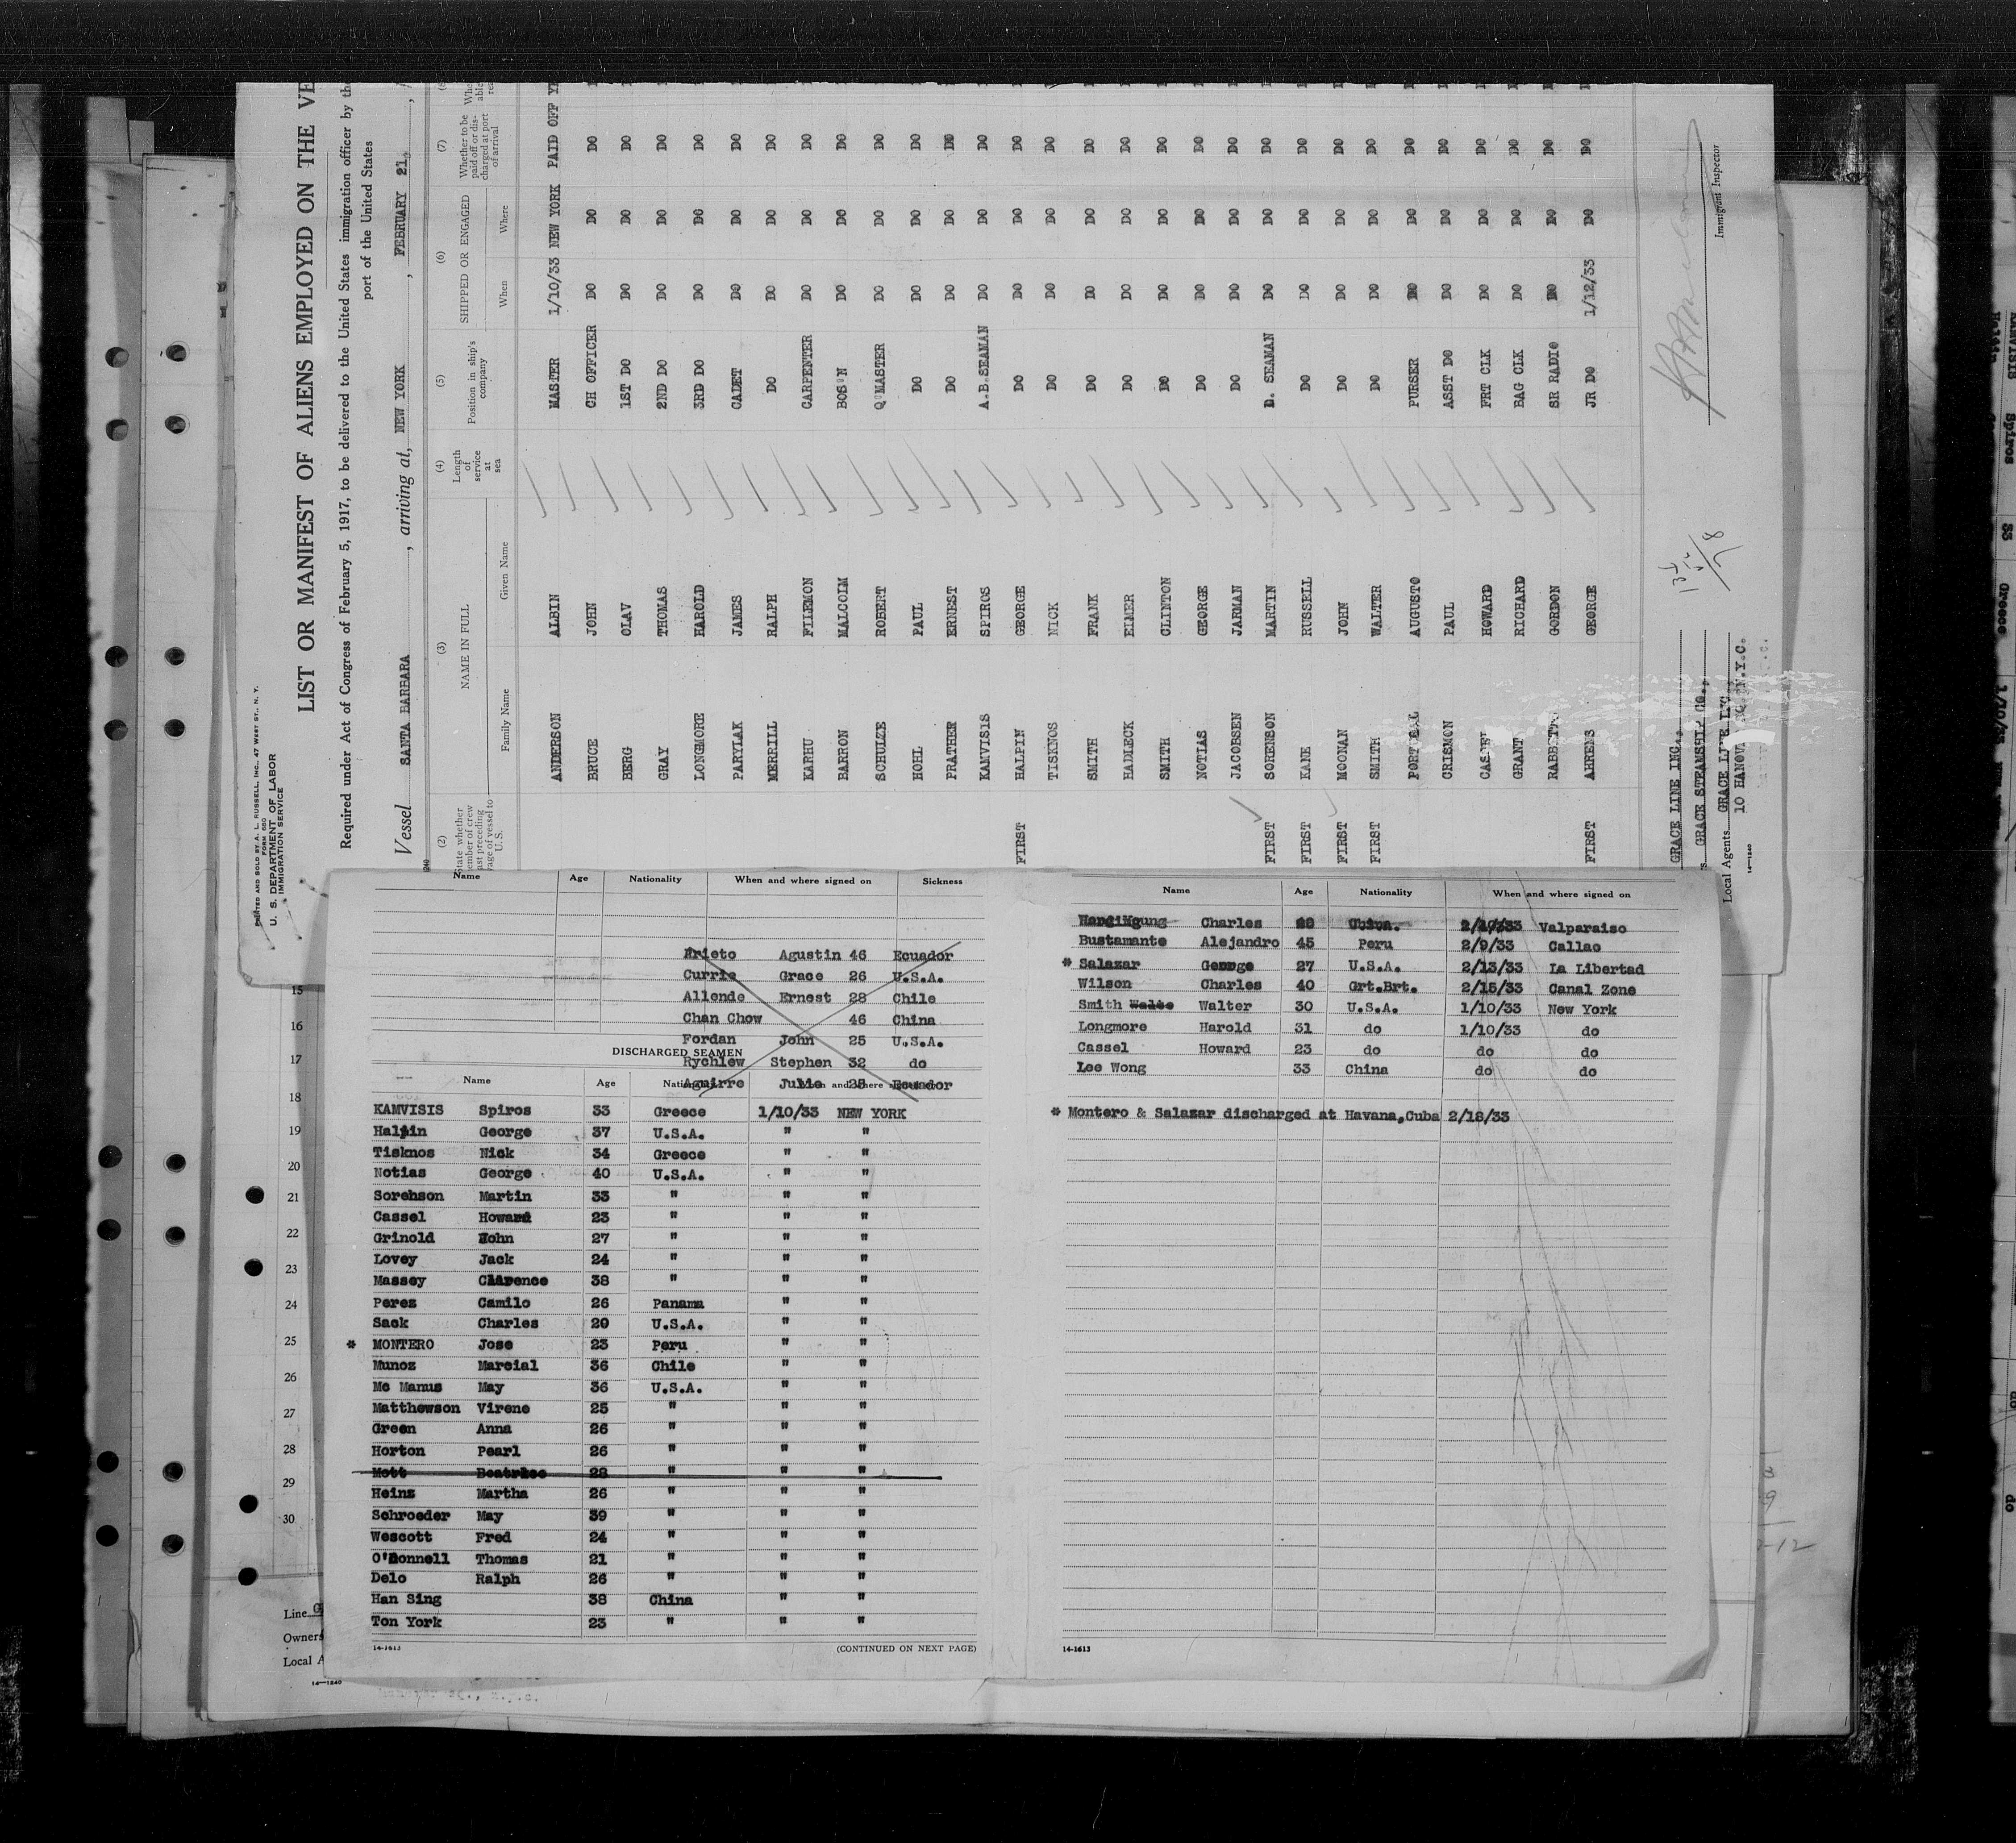 PRINTED AND SOLD BY A. L. RUSSELL, INC., 47 WEST ST., N. Y.
FORM 680
U. S. DEPARTMENT OF LABOR
IMMIGRATION SERVICE
LIST OR MANIFEST OF ALIENS EMPLOYED ON THE VE
Required under Act of Congress of February 5, 1917, to be delivered to the United States immigration officer by the
port of the United States
Vessel SANTA BARBARA, arriving at, NEW YORK, FEBRUARY 21,
(2) (3) (4) (5) (6) (7)
State whether member of crew last preceding voyage of vessel to U. S.
NAME IN FULL
Family Name Given Name
Length of service at sea
Position in ship's company
SHIPPED OR ENGAGED
When Where
Whether to be paid off or discharged at port of arrival
ANDERSON ALBIN MASTER 1/10/33 NEW YORK PAID OFF
BRUCE JOHN CH OFFICER DO DO DO
BERG OLAV 1ST DO DO DO DO
GRAY THOMAS 2ND DO DO DO DO
LONGMORE HAROLD 3RD DO DO DO DO
PARYLAK JAMES CADET DO DO DO
MERRILL RALPH DO DO DO DO
KARHU FILEMON CARPENTER DO DO DO
BARRON MALCOLM BOS'N DO DO DO
SCHULZE ROBERT Q'MASTER DO DO DO
HOHL PAUL DO DO DO DO
PRATHER ERNEST DO DO DO DO
KAMVISIS SPIROS A.B.SEAMAN DO DO DO
FIRST HALPIN GEORGE DO DO DO DO
TISKNOS NICK DO DO DO DO
SMITH FRANK DO DO DO DO
HADLECK ELMER DO DO DO DO
SMITH CLINTON DO DO DO DO
NOTIAS GEORGE DO DO DO DO
JACOBSEN JARMAN DO DO DO DO
FIRST SORENSON MARTIN D. SEAMAN DO DO DO
FIRST KANE RUSSELL DO DO DO DO
FIRST MOONAN JOHN DO DO DO DO
FIRST SMITH WALTER DO DO DO DO
AUGUSTO PURSER DO DO DO
CRISMON PAUL ASST DO DO DO DO
CASSEL HOWARD FRT CLK DO DO DO
GRANT RICHARD BAG CLK DO DO DO
GORDON SR RADIO DO DO DO
FIRST AHRENS GEORGE JR DO 1/12/33 DO DO
GRACE LINE INC.,
GRACE STEAMSHIP CO.,
Local Agents GRACE LINE INC.
10 HANOVER N.Y.C.
14—1240
Immigrant Inspector
Name Age Nationality When and where signed on Sickness
Prieto Agustin 46 Ecuador
Currie Grace 26 U.S.A.
Allende Ernest 28 Chile
Chan Chow 46 China
Fordan John 25 U.S.A.
Rychlew Stephen 32 do
Aguirre Julio 25 Ecuador
DISCHARGED SEAMEN
Name Age Nationality When and where signed on
KAMVISIS Spiros 33 Greece 1/10/33 NEW YORK
Halpin George 37 U.S.A. " "
Tisknos Nick 34 Greece " "
Notias George 40 U.S.A. " "
Sorehson Martin 33 " " "
Cassel Howard 23 " " "
Grinold John 27 " " "
Lovey Jack 24 " " "
Massey Clarence 38 " " "
Perez Camilo 26 Panama " "
Sack Charles 20 U.S.A. " "
* MONTERO Jose 23 Peru " "
Munoz Marcial 36 Chile " "
Mc Manus May 36 U.S.A. " "
Matthewson Virene 25 " " "
Green Anna 26 " " "
Horton Pearl 26 " " "
Mott Beatrice 28 " " "
Heinz Martha 26 " " "
Schroeder May 39 " " "
Wescott Fred 24 " " "
O'Donnell Thomas 21 " " "
Delo Ralph 26 " " "
Han Sing 38 China " "
Ton York 23 " " "
14-1613 (CONTINUED ON NEXT PAGE)
Name Age Nationality When and where signed on
Charles China. Valparaiso
Bustamante Alejandro 45 Peru 2/9/33 Callao
* Salazar George 27 U.S.A. 2/13/33 La Libertad
Wilson Charles 40 Grt.Brt. 2/15/33 Canal Zone
Smith Walte Walter 30 U.S.A. 1/10/33 New York
Longmore Harold 31 do 1/10/33 do
Cassel Howard 23 do do do
Lee Wong 33 China do do
* Montero & Salazar discharged at Havana,Cuba 2/18/33
14-1613
15
16
17
18
19
20
21
22
23
24
25
26
27
28
29
30
Line G
Owners
Local A
14—1240